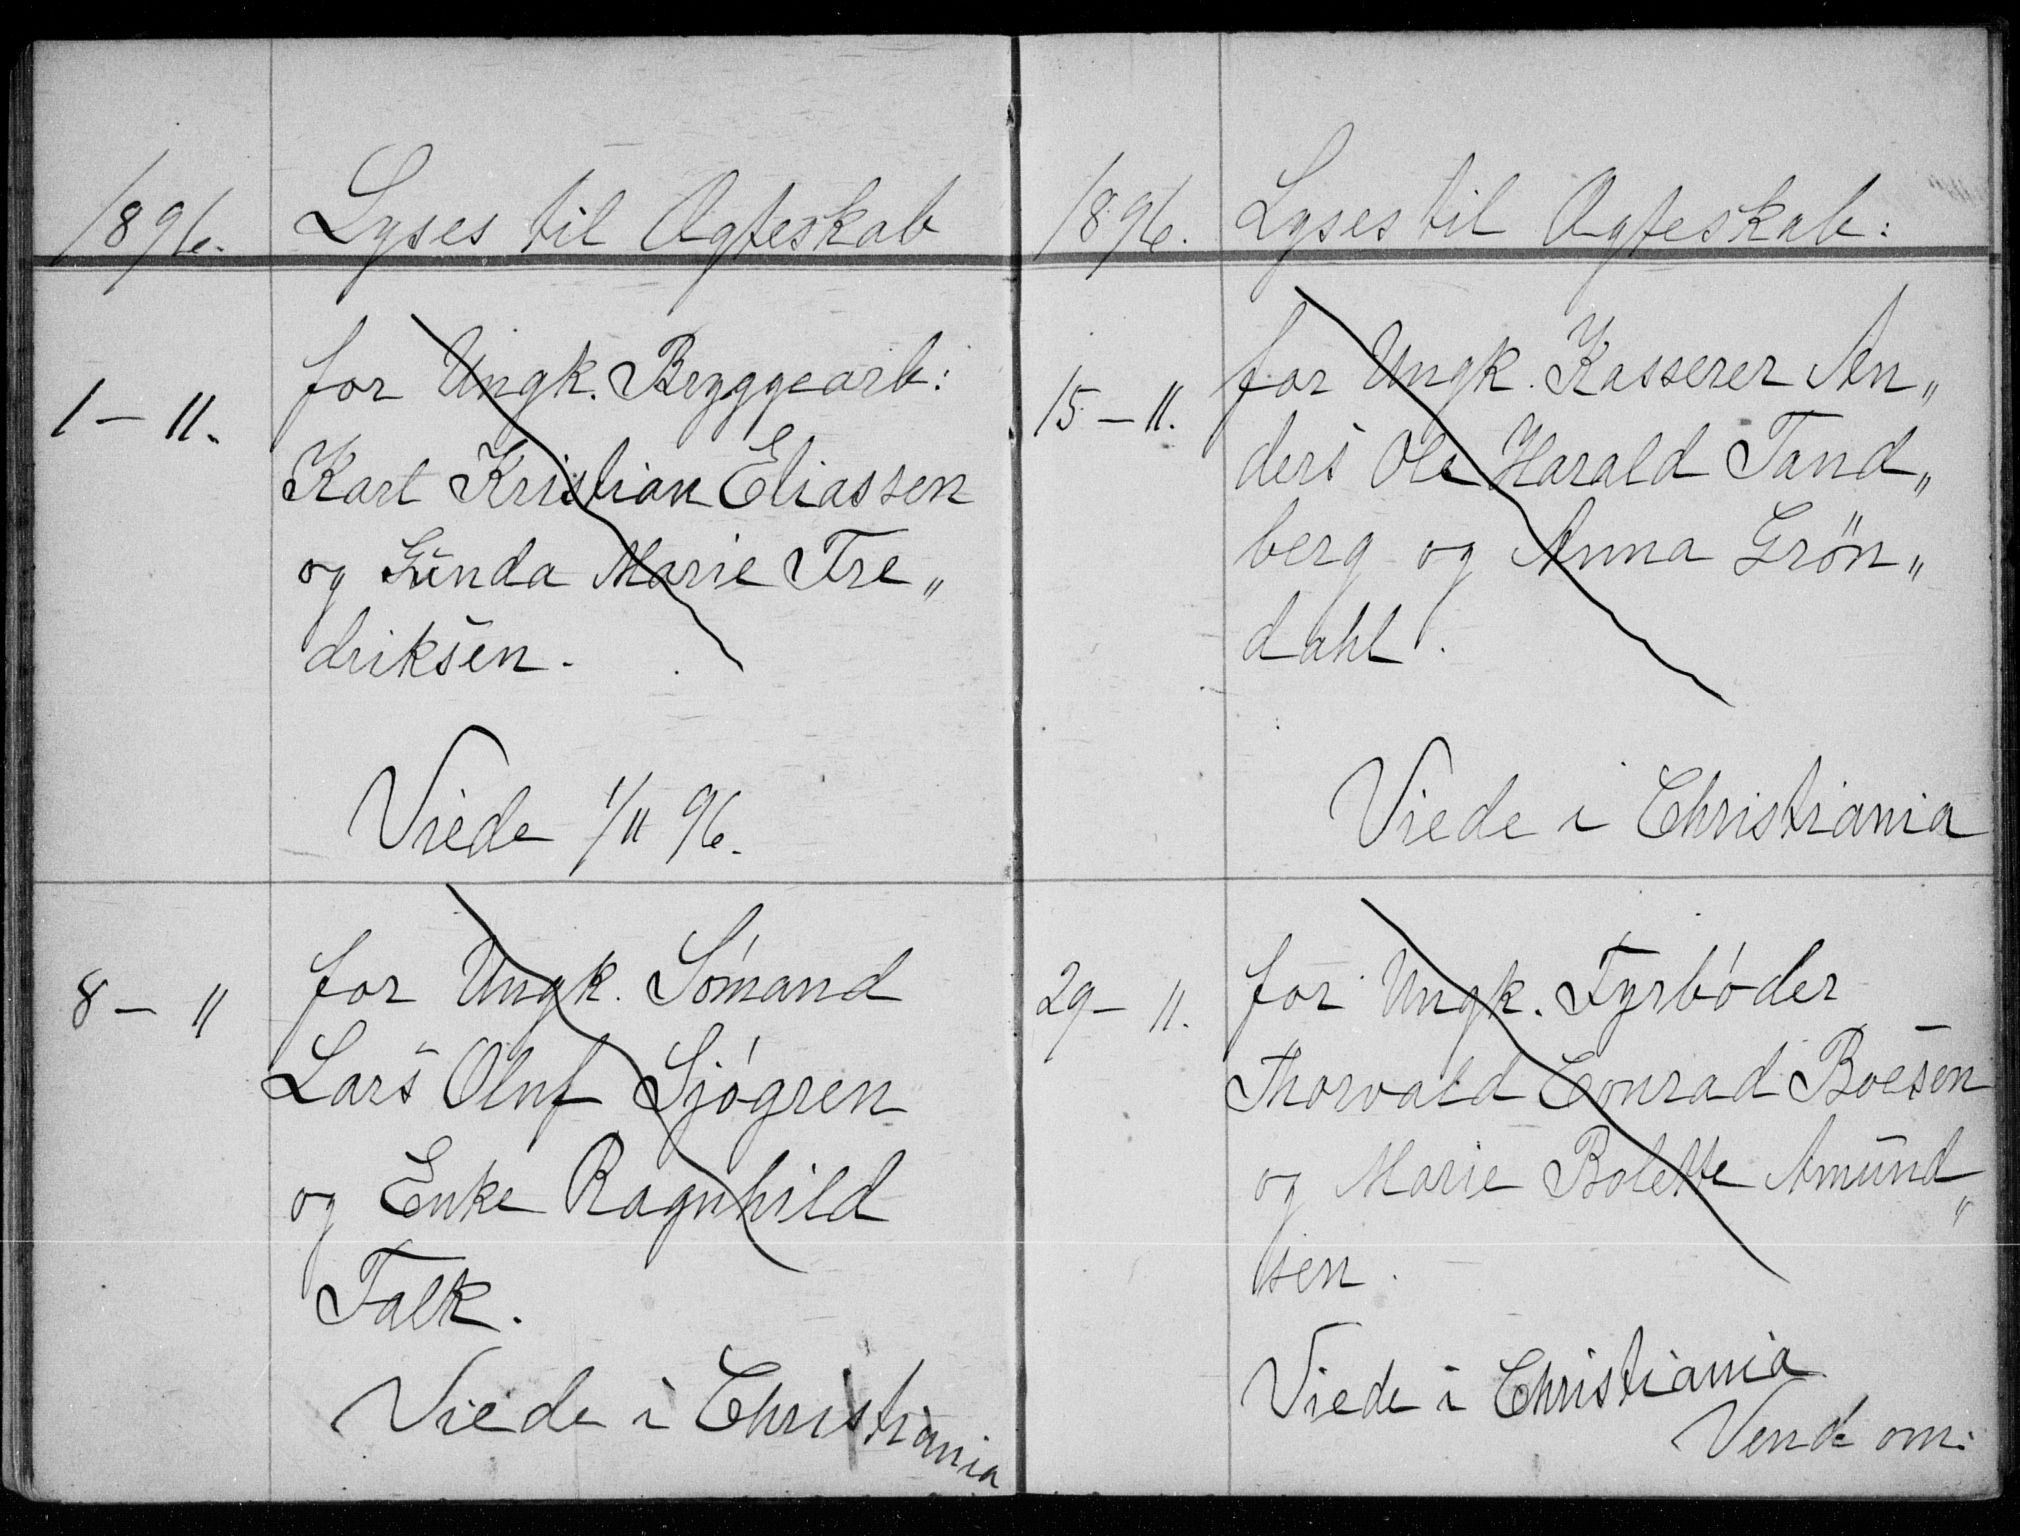 1896. Lyses til Ægteskab
1 - 11. for Ungk. Bryggearb:
Karl Kristian Eliassen
og Gunda Marie Fre„
driksen.
Viede 1/11 96.
8 - 11 for Ungk. Sömand
Lars Oluf Sjögren
og Enke Ragnhild
Falk.
Viede i Christiania
1896. Lyses til Ægteskab:
15 - 11. for Ungk. Kasserer An„
ders Ole Harald Tand„
berg og Anna Grön„
dahl.
Viede i Christiania
29 - 11. for Ungk. Fyrböder
Thorvald Conrad Boesen
og Marie Bolette Amund„
sen.
Viede i Christiania
Vend om: